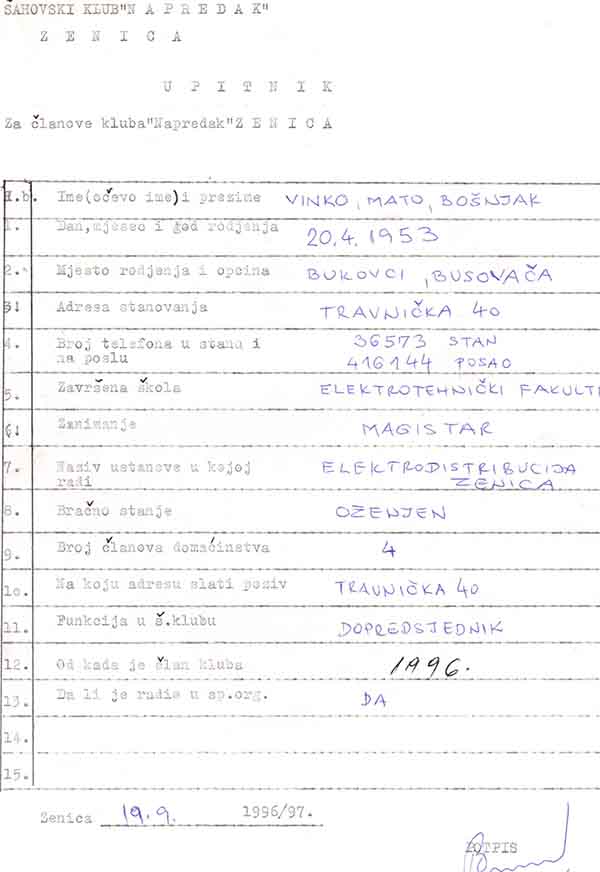 ŠAHOVSKI KLUB"N A P R E D A K"
Z E N I C A
U P I T N I K
Za članove kluba"Napredak"Z E N I C A
R.b. Ime(očevo ime)i prezime VINKO, MATO, BOŠNJAK
1. Dan,mjesec i god rodjenja 20.4.1953
2. Mjesto rodjenja i opcina BUKOVCI, BUSOVAČA
3. Adresa stanovanja TRAVNIČKA 40
4. Broj telefona u stanu i 36573 STAN
na poslu 416144 POSAO
5. Završena škola ELEKTROTEHNIČKI FAKULTE
6. Zanimanje MAGISTAR
7. Naziv ustanove u kojoj ELEKTRODISTRIBUCIJA
radi ZENICA
8. Bračno stanje OŽENJEN
9. Broj članova domaćinstva 4
10. Na koju adresu slati poziv TRAVNIČKA 40
11. Funkcija u š.klubu DOPREDSJEDNIK
12. Od kada je član kluba 1996.
13. Da li je radio u sp.org. DA
14.
15.
Zenica 19.9. 1996/97.
POTPIS